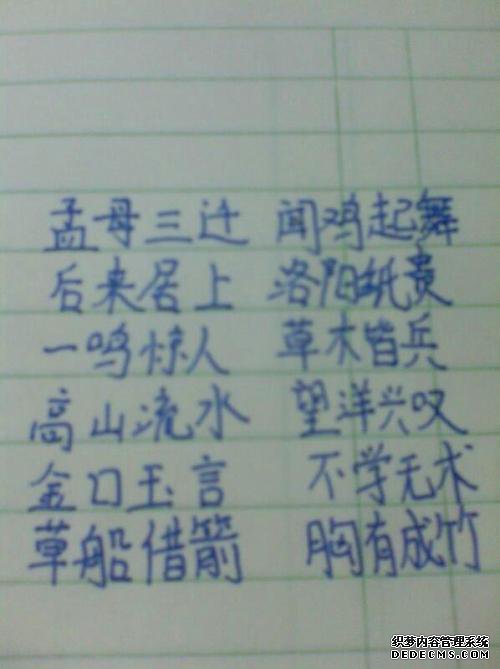 孟母三迁 闻鸡起舞
后来居上 洛阳纸贵
一鸣惊人 草木皆兵
高山流水 望洋兴叹
金口玉言 不学无术
草船借箭 胸有成竹
织梦内容管理系统
DEDECMS.COM